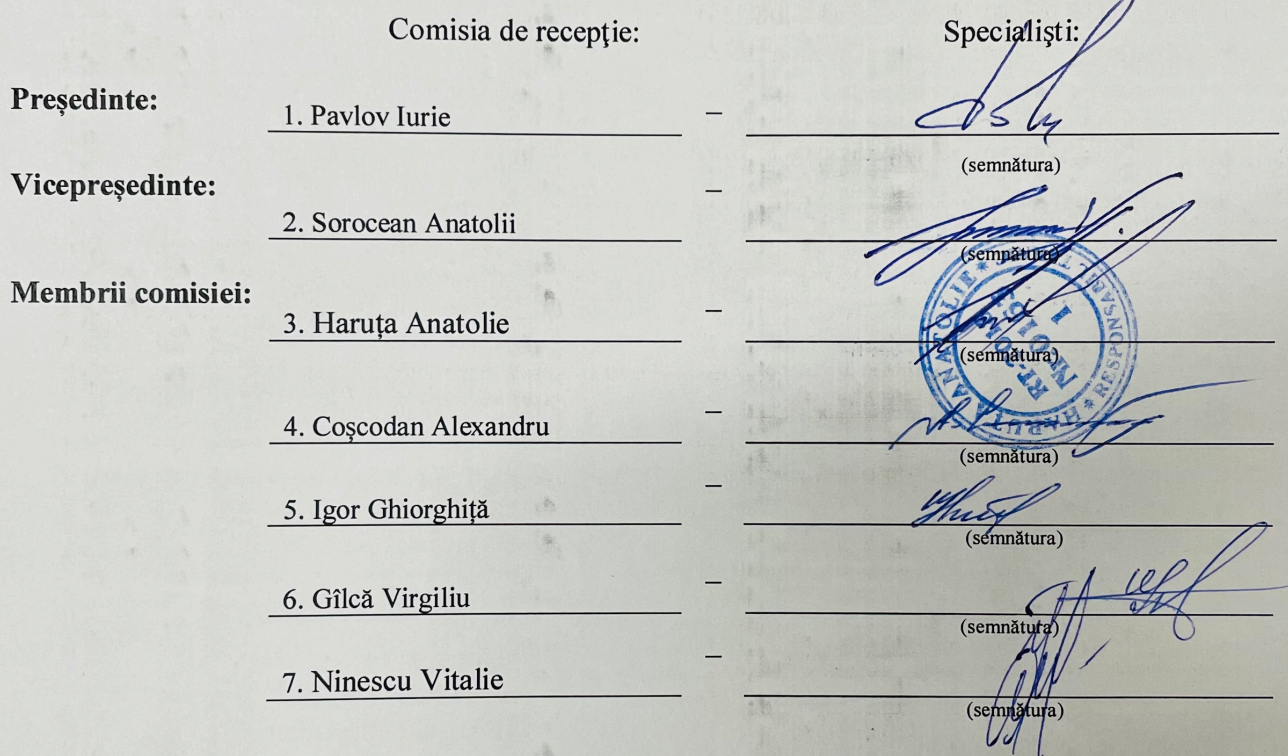 Comisia de recepţie: Specialişti:
Președinte:
1. Pavlov Iurie –
(semnătura)
Vicepreședinte: –
2. Sorocean Anatolii
(semnătura)
Membrii comisiei: –
3. Haruța Anatolie
(semnătura)
HARUȚA ANATOLIE * RESPONSABIL
4. Coșcodan Alexandru –
(semnătura)
5. Igor Ghiorghiță –
(semnătura)
6. Gîlcă Virgiliu –
(semnătura)
7. Ninescu Vitalie –
(semnătura)